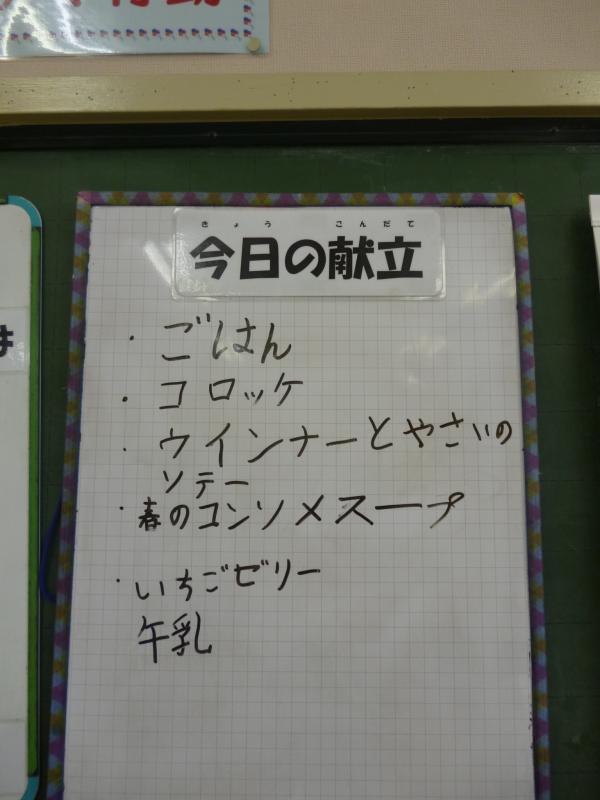 きょう こんだて
今日の献立
・ごはん
・コロッケ
・ウインナーとやさいの
ソテー
・春のコンソメスープ
・いちごゼリー
午乳